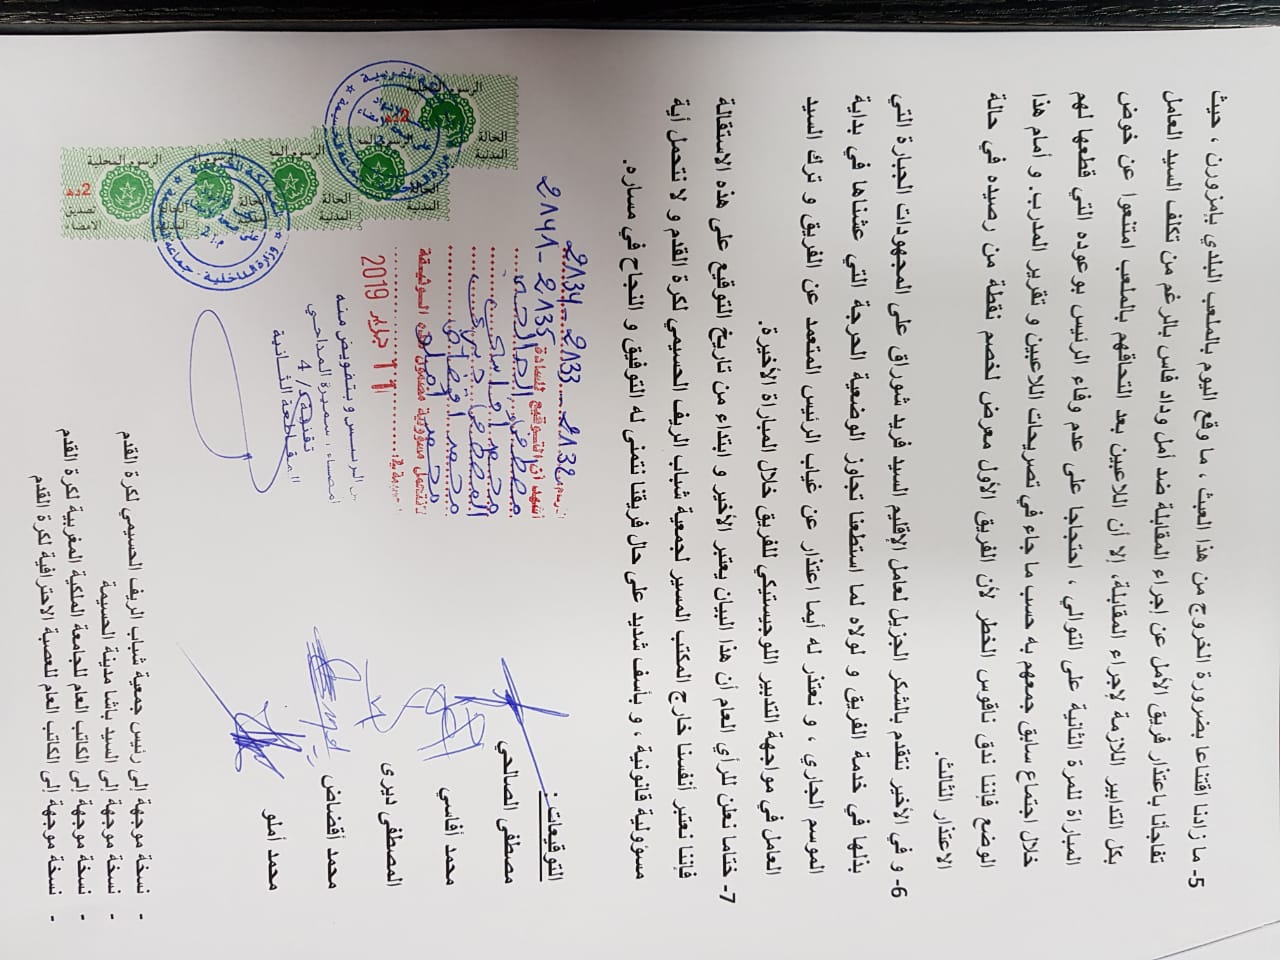 5- ما زادنا اقتناعا بضرورة الخروج من هذا العبث ، ما وقع اليوم بالملعب البلدي بإمزورن ، حيث
تفاجأنا باعتذار فريق الأمل عن إجراء المقابلة ضد أمل وداد فاس بالرغم من تكلف السيد العامل
بكل التدابير اللازمة لإجراء المقابلة، إلا أن اللاعبين بعد التحاقهم بالملعب امتنعوا عن خوض
المباراة للمرة الثانية على التوالي ، احتجاجا على عدم وفاء الرئيس بوعوده التي قطعها لهم
خلال اجتماع سابق جمعهم به حسب ما جاء في تصريحات اللاعبين و تقرير المدرب. و أمام هذا
الوضع فإننا ندق ناقوس الخطر لأن الفريق الأول معرض لخصم نقطة من رصيده في حالة
الاعتذار الثالث.
6- و في الأخير نتقدم بالشكر الجزيل لعامل الإقليم السيد فريد شوراق على المجهودات الجبارة التي
بذلها في خدمة الفريق و لولاه لما استطعنا تجاوز الوضعية الحرجة التي عشناها في بداية
الموسم الجاري ، و نعتذر له أيما اعتذار عن غياب الرئيس المتعمد عن الفريق و ترك السيد
العامل في مواجهة التدبير اللوجيستيكي للفريق خلال المباراة الأخيرة.
7- ختاما نعلن للرأي العام أن هذا البيان يعتبر الأخير و ابتداء من تاريخ التوقيع على هذه الاستقالة
فإننا نعتبر أنفسنا خارج المكتب المسير لجمعية شباب الريف الحسيمي لكرة القدم و لا نتحمل أية
مسؤولية قانونية ، و بأسف شديد على حال فريقنا نتمنى له التوفيق و النجاح في مساره.
التوقيعات :
مصطفى الصالحي
محمد أفاسي
المصطفى ديرى
محمد أقضاض
محمد أملو
2134 - 2133 - 2132
2141 - 2135
أشهد أن التوقيع للسادة
مصطفى الصالحي
محمد أفاسي
المصطفى ديرى
محمد أقضاض
محمد أملو
11 فبراير 2019
الرئيس وبتفويض منه
إمضاء : سميرة المداحي
الرسوم المحلية
الحالة المدنية
2 د
تصديق الامضاء
- نسخة موجهة إلى رئيس جمعية شباب الريف الحسيمي لكرة القدم
- نسخة موجهة إلى السيد باشا مدينة الحسيمة
- نسخة موجهة إلى الكاتب العام للجامعة الملكية المغربية لكرة القدم
- نسخة موجهة إلى الكاتب العام للعصبة الاحترافية لكرة القدم